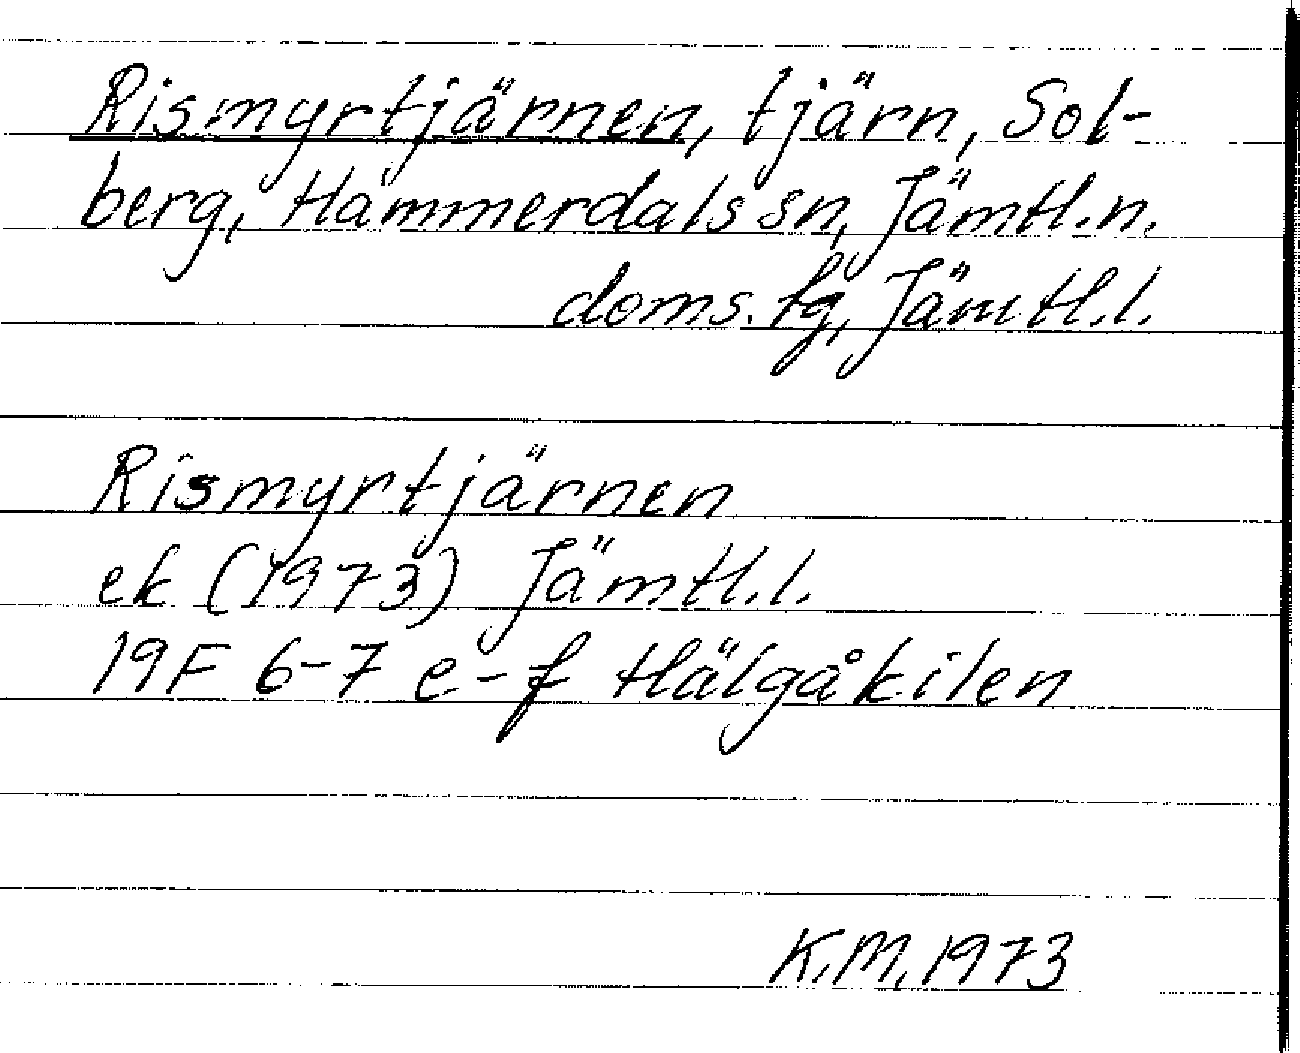 Rismyrtjärnen, tjärn, Sol-
berg, Hammerdals sn, Jämtl.n.
doms. fg, Jämtl.l.
Rismyrtjärnen
ek (1973) Jämtl.l.
19F 6-7 e-f Hälgåkilen
K.M. 1973